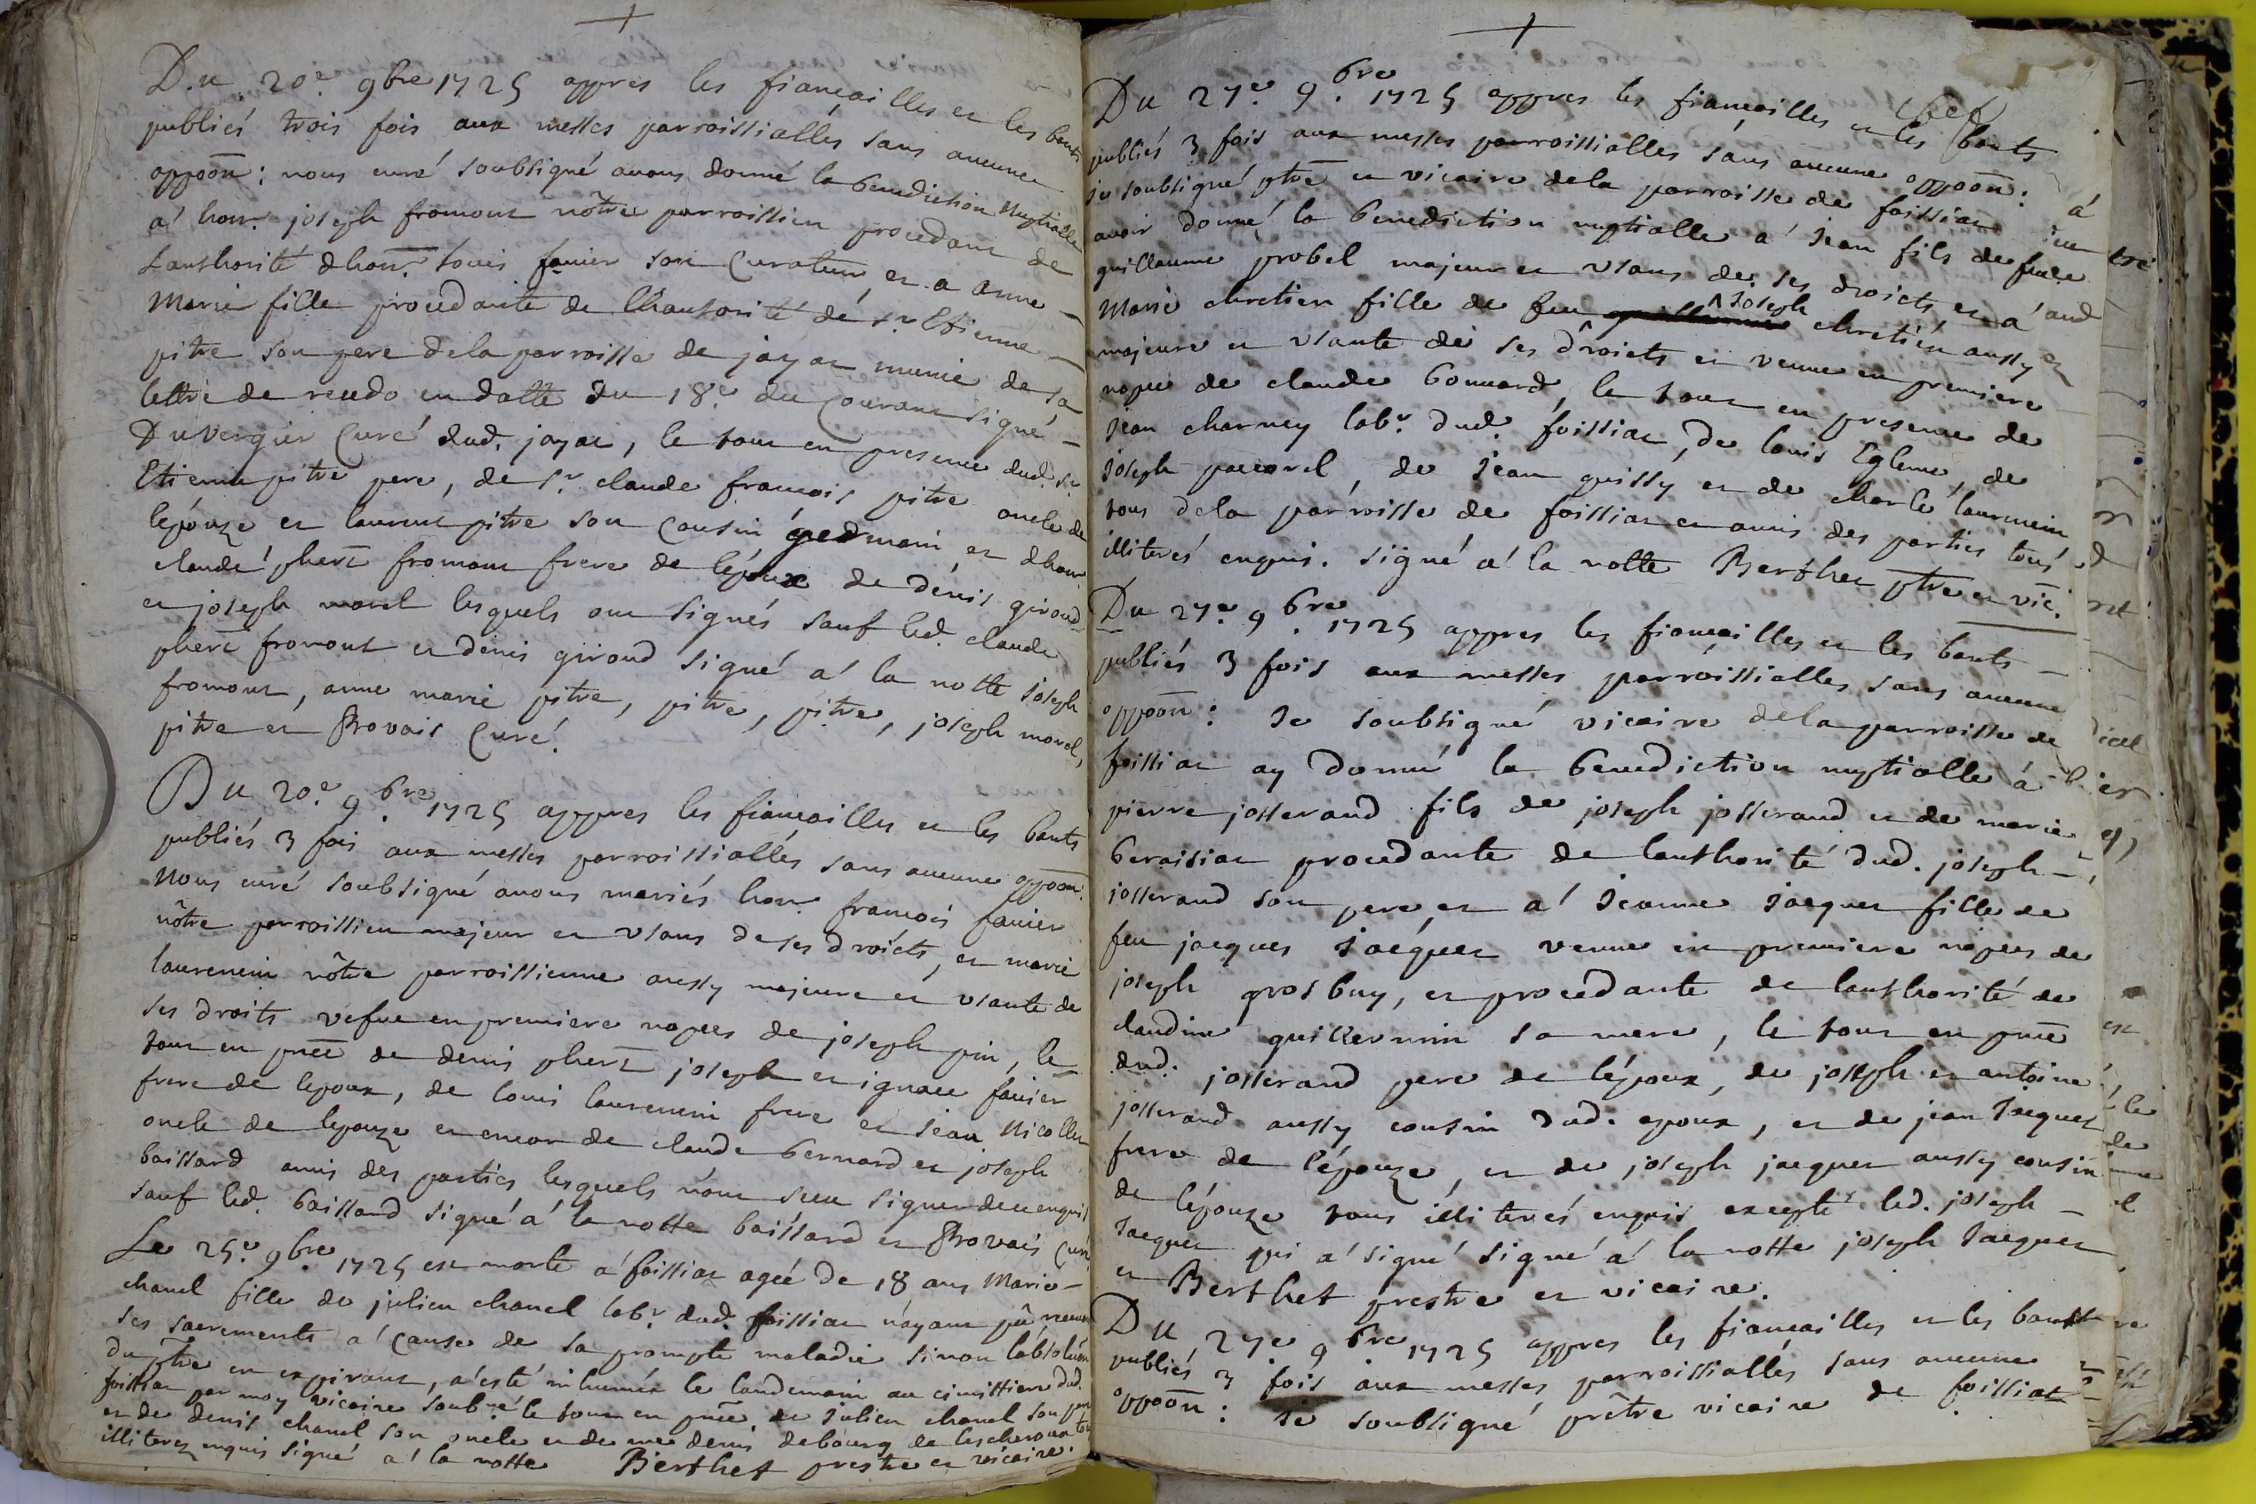 Du 20e 9bre 1725 appres les fiançailles et les bants
publiés trois fois aux messes parroissialles sans aucune
oppoõn: nous curé soubsigné avons donné la benediction nuptialle
a' hon. joseph fromont nôtre parroissien procedant de
Lauthorité dhon. louis favier son Curateur, et a anne –
Marie fille procedante de Lhauthorité de sr Etienne –
pitre son pere dela parroisse de jayat munie de sa
lettre de recedo en datte du 18e du Courant signé –
Duvergier Curé dud. jayat, le tout en presence dud. sr
Etienne pitre pere, de sr claude françois pitre oncle de
lépouze et laurent pitre son Cousin germain et dhon.
claude phert fromont frere de lépoux de dénis giroud
et joseph morel lesquels ont signés sauf led. claude
phert fromont et denis giroud signé a' la notte joseph
fromont, anne marie pitre, pitre, pitre, joseph morel,
pitre et Provais Curé.
Du 20e 9bre 1725 appres les fiançailles et les bants
publiés 3 fois aux messes parroissialles sans aucune oppoõn.
Nous curé soubsigné avons mariés hon. françois favier
nôtre parroissien majeur et usant de ses droicts, et marie
laurencin nôtre parroissienne aussy majeure et usante de
ses droits vefue en premiere nopces de joseph pin, le
tout en pnce de denis phert joseph et ignace favier
frere de lepoux, de louis laurencin frere et jean Nicollet
oncle de lepouze et encor de claude bernard et joseph
baissard amis des parties lesquels n'ont sceu signer de ce enquis
sauf led. baissard signé a' la notte baissard et Provais Curé
Le 25e 9bre 1725 est morte a' foissiat ageé de 18 ans Marie –
chanel fille de julien chanel labr dud. foissiat n'ayant pû recevoir
ses sacrements a' Cause de sa prompte maladie sinon labsoluõn
du ptre en expirant, a' esté inhumée le landemain au cimittiere dud.
foissiat par moy vicaire soubné le tout en pnce de Julien chanel son pere
et de denis chanel son oncle et de me denis debourg de lescheroux tous
illiterez enquis signé a' la notte Berthet prestre et vicaire.
Du 27e 9bre 1725 appres les fiançailles et les bants
publiés 3 fois aux messes parroissialles sans aucune oppoõn:
je soubsigné ptre et vicaire dela parroisse de foissiat
avoir donné la benediction nuptialle a' Jean fils de feu
guillaume probel majeur et usant de ses droicts et a'
Marie chretien fille de feu Joseph chretien aussy
majeure et usante de ses droicts et veuue en premiere
nopces de claude bonnard, le tout en presence de
Jean charney labr dud. foissiat, de louis Egleme, de
Joseph pacorel, de jean guissy et de charle laurencin
tous dela parroisse de foissiat et amis des parties tous
illiterés enquis. signé a' la notte Berthet ptre et vic.
Du 27e 9bre 1725 appres les fiançailles et les bants –
publiés 3 fois aux messes parroissialles sans aucune
oppoõn: Je soubsigné vicaire dela parroisse de
foissiat ay donné la benediction nuptialle á
pierre josserand fils de joseph josserand et de marie
beraisiat procedante de lauthorité dud. joseph –
josserand son pere, et a' Jeanne Jacquet fille de
feu jacques Jacquet veuue en premiere nopces de
joseph grosbuy, et procedante de lauthorité de
claudine guillermin sa mere, le tout en pnce
dud. josserand pere de lépoux, de joseph et antoine
josserand aussy cousin dud. epoux, et de jean Jacquet
frere de l'épouze, et de joseph jacquet aussy cousin
de lépouze tous illiterés enquis excepté led. joseph –
Jacquet qui a' signé signé a' la notte joseph Jacquet
et Berthet prestre et vicaire.
Du 27e 9bre 1725 appres les fiançailles et les bants
publiés 3 fois aux messes parroissialles sans aucune
oppoõn: je soubsigné prêtre vicaire de foissiat